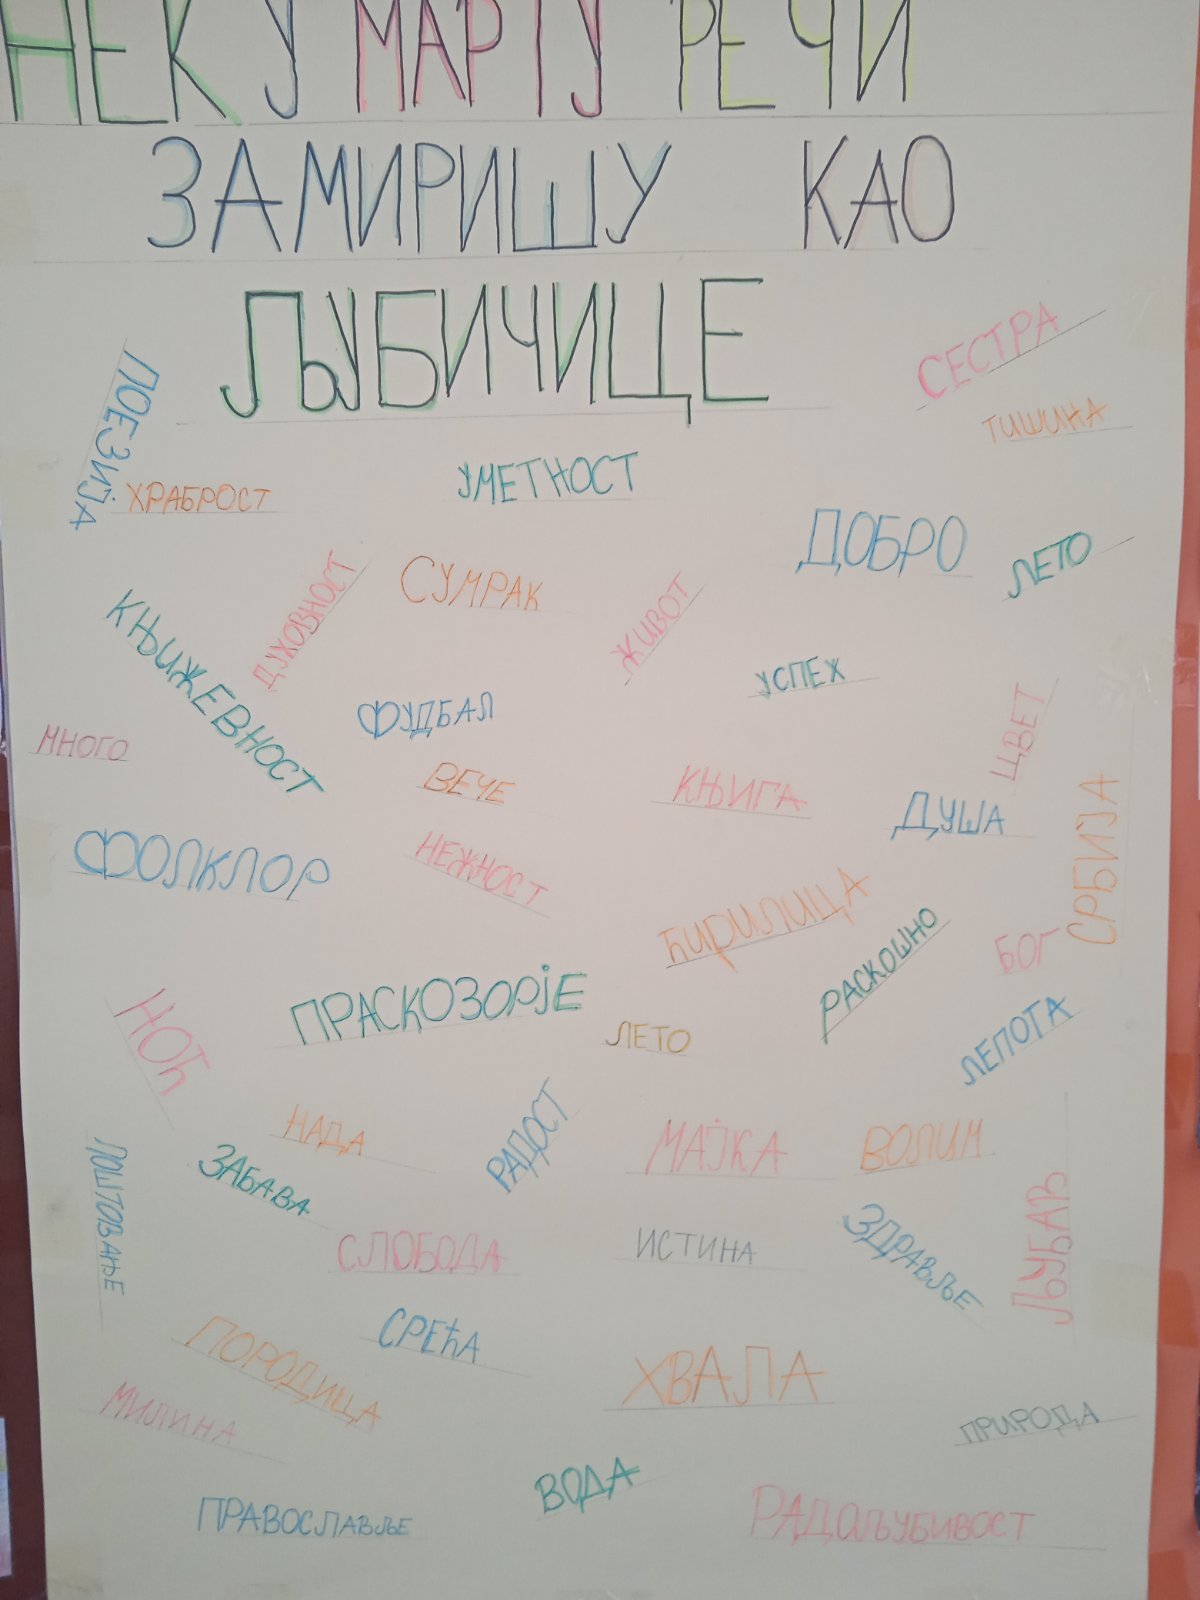 НЕК У МАРТУ РЕЧИ
ЗАМИРИШУ КАО
ЉУБИЧИЦЕ
СЕСТРА
ПОЕЗИЈА
ТИШИНА
ХРАБРОСТ
УМЕТНОСТ
ДОБРО
ЛЕТО
СУМРАК
ДУХОВНОСТ
ЖИВОТ
КЊИЖЕВНОСТ
УСПЕХ
ФУДБАЛ
ЦВЕТ
МНОГО
ВЕЧЕ
КЊИГА
ДУША
СРБИЈА
ФОЛКЛОР
НЕЖНОСТ
ЋИРИЛИЦА
РАСКОШНО
БОГ
ПРАСКОЗОРЈЕ
НОЋ
ЛЕТО
ЛЕПОТА
НАДА
РАДОСТ
МАЈКА
ВОЛИМ
ЗАБАВА
ПОШТОВАЊЕ
СЛОБОДА
ИСТИНА
ЗДРАВЉЕ
ЉУБАВ
СРЕЋА
ПОРОДИЦА
ХВАЛА
МИЛИНА
ПРИРОДА
ВОДА
ПРАВОСЛАВЉЕ
РАДОЉУБИВОСТ